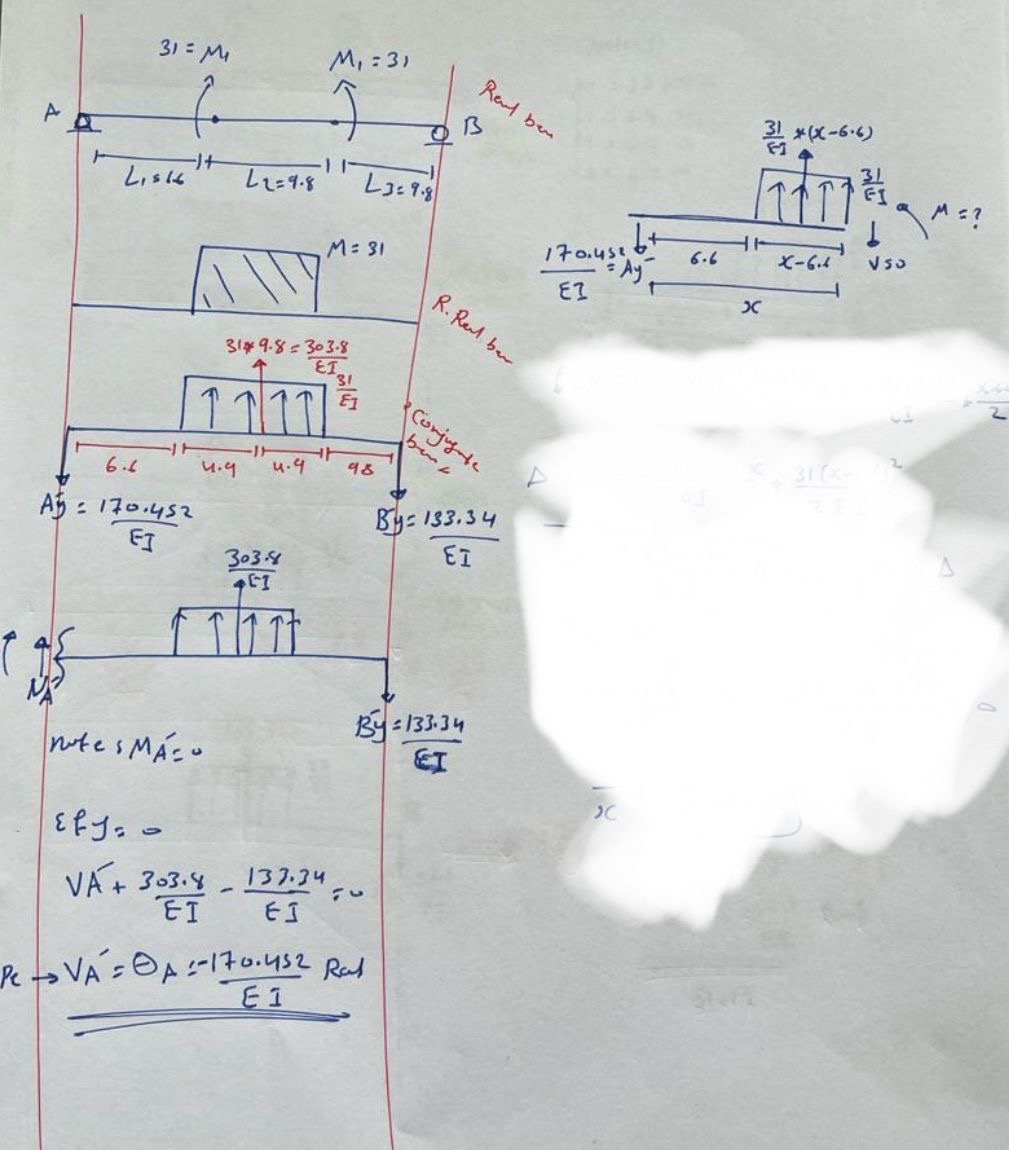 31 = M₁
M₁ = 31
A
B
Real bem
L₁=6.6
L2=9.8
L3=9.8
M=31
R. Real bem
31*9.8 = 303.8/EI
31/EI
Conjugate bem
6.6
4.9
4.9
9.8
Aý = 170.452/EI
Bý = 133.34/EI
303.8/EI
Bý = 133.34/EI
note : MÁ = 0
ΣFy = 0
VÁ + 303.8/EI - 133.34/EI = 0
→ VÁ = θA = -170.452/EI Rad
31/EI *(x-6.6)
31/EI
M = ?
170.452/EI = Aý
6.6
x-6.6
V=0
x
Δ
x
EI
+ 31(x-
)²
2 EI
2
Δ
x